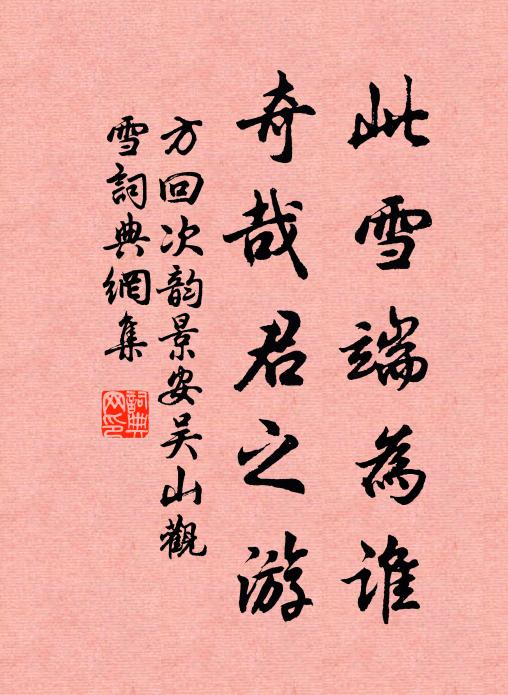 此雪端為誰
奇哉君之游
方回次韵景安吴山觀
雪詞典網集
詞典网印